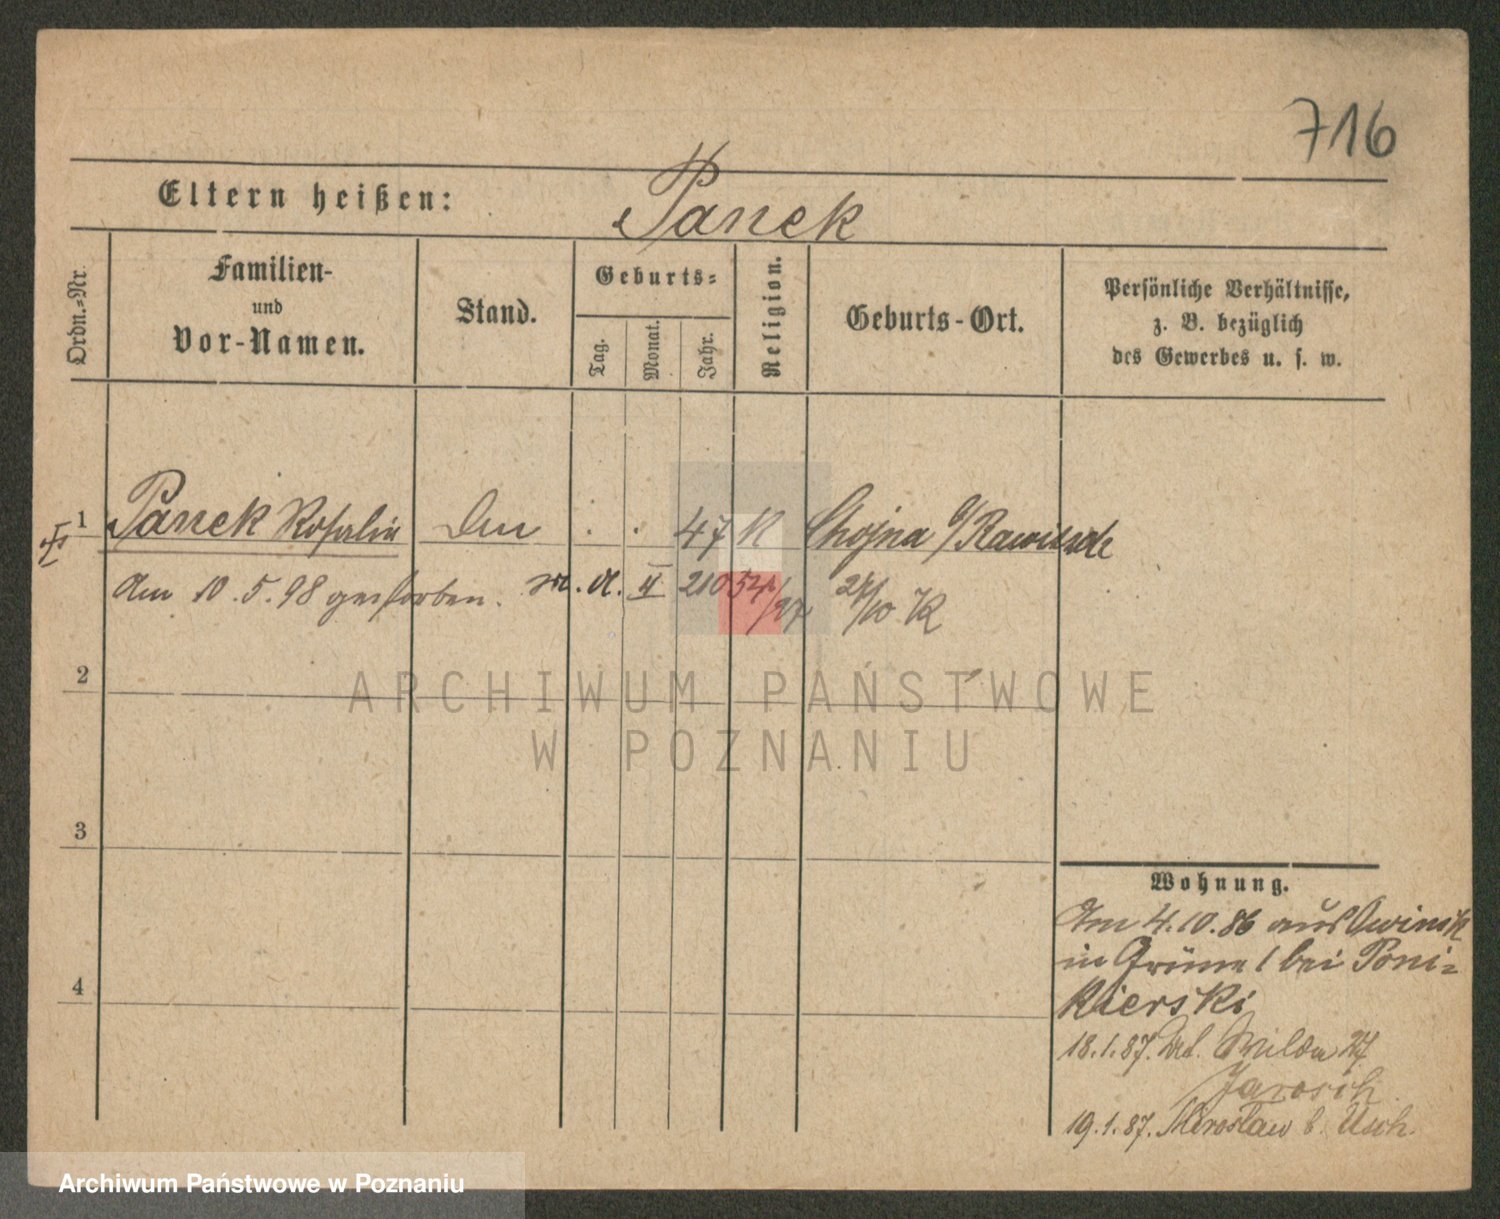 716
Eltern heißen: Panek
Ordn.-Nr.
Familien-
und
Vor-Namen.
Stand.
Geburts-
Tag.
Monat.
Jahr.
Religion.
Geburts-Ort.
Persönliche Verhältnisse,
z. B. bezüglich
des Gewerbes u. s. w.
1 Panek Rosalie 47 K Chojna b/Rawitsch
Am 10.5.98 gestorben. 210 54/97 27/10 K
2
ARCHIWUM PAŃSTWOWE
W POZNANIU
3
4
Wohnung.
Am 4.10.86 aus Owinsk
in bei Poni-
kierski
18.1.87. Wilda 27
Jarosch
19.1.87. Miroslaw b. Usch.
Archiwum Państwowe w Poznaniu